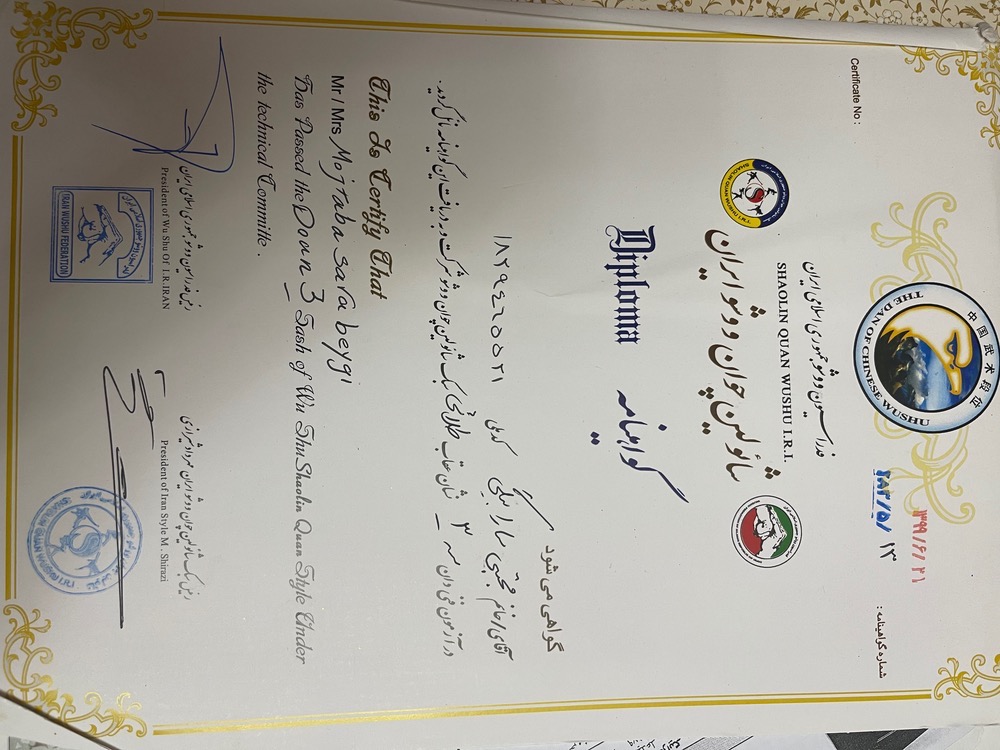 中国武术段位
THE DAN OF CHINESE WUSHU
Certificate No :
شماره گواهینامه :
۳۹۹/۶/۲۱
۲۸۲/۵/۱۳
فدراسیون ووشو جمهوری اسلامی ایران
SHAOLIN QUAN WUSHU I.R.I.
شائولین چوان ووشو ایران
SHAOLIN QUAN WUSHU I.R.I.
Diploma
گواهینامه
گواهی می شود
آقای/خانم مجتبی سارابیگی کدملی ۱۸۲۹۴۶۵۵۲۱
در آزمون فنی دان سه ۳ شال طلائی سبک شائولین چوان ووشو شرکت و به دریافت این گواهینامه نائل گردید.
This Is Certify That
Mr / Mrs Mojtaba sara beygi
Has Passed the Down 3 Sash of Wu Shu Shaolin Quan Style Under
the technical Committe .
رئیس فدراسیون ووشو جمهوری اسلامی ایران
President of Wu Shu Of I.R.IRAN
IRAN WUSHU FEDERATION
رئیس سبک شائولین چوان ووشو ایران مهرداد شیرازی
President of Iran Style M . Shirazi
SHAOLIN QUAN WUSHU I.R.I